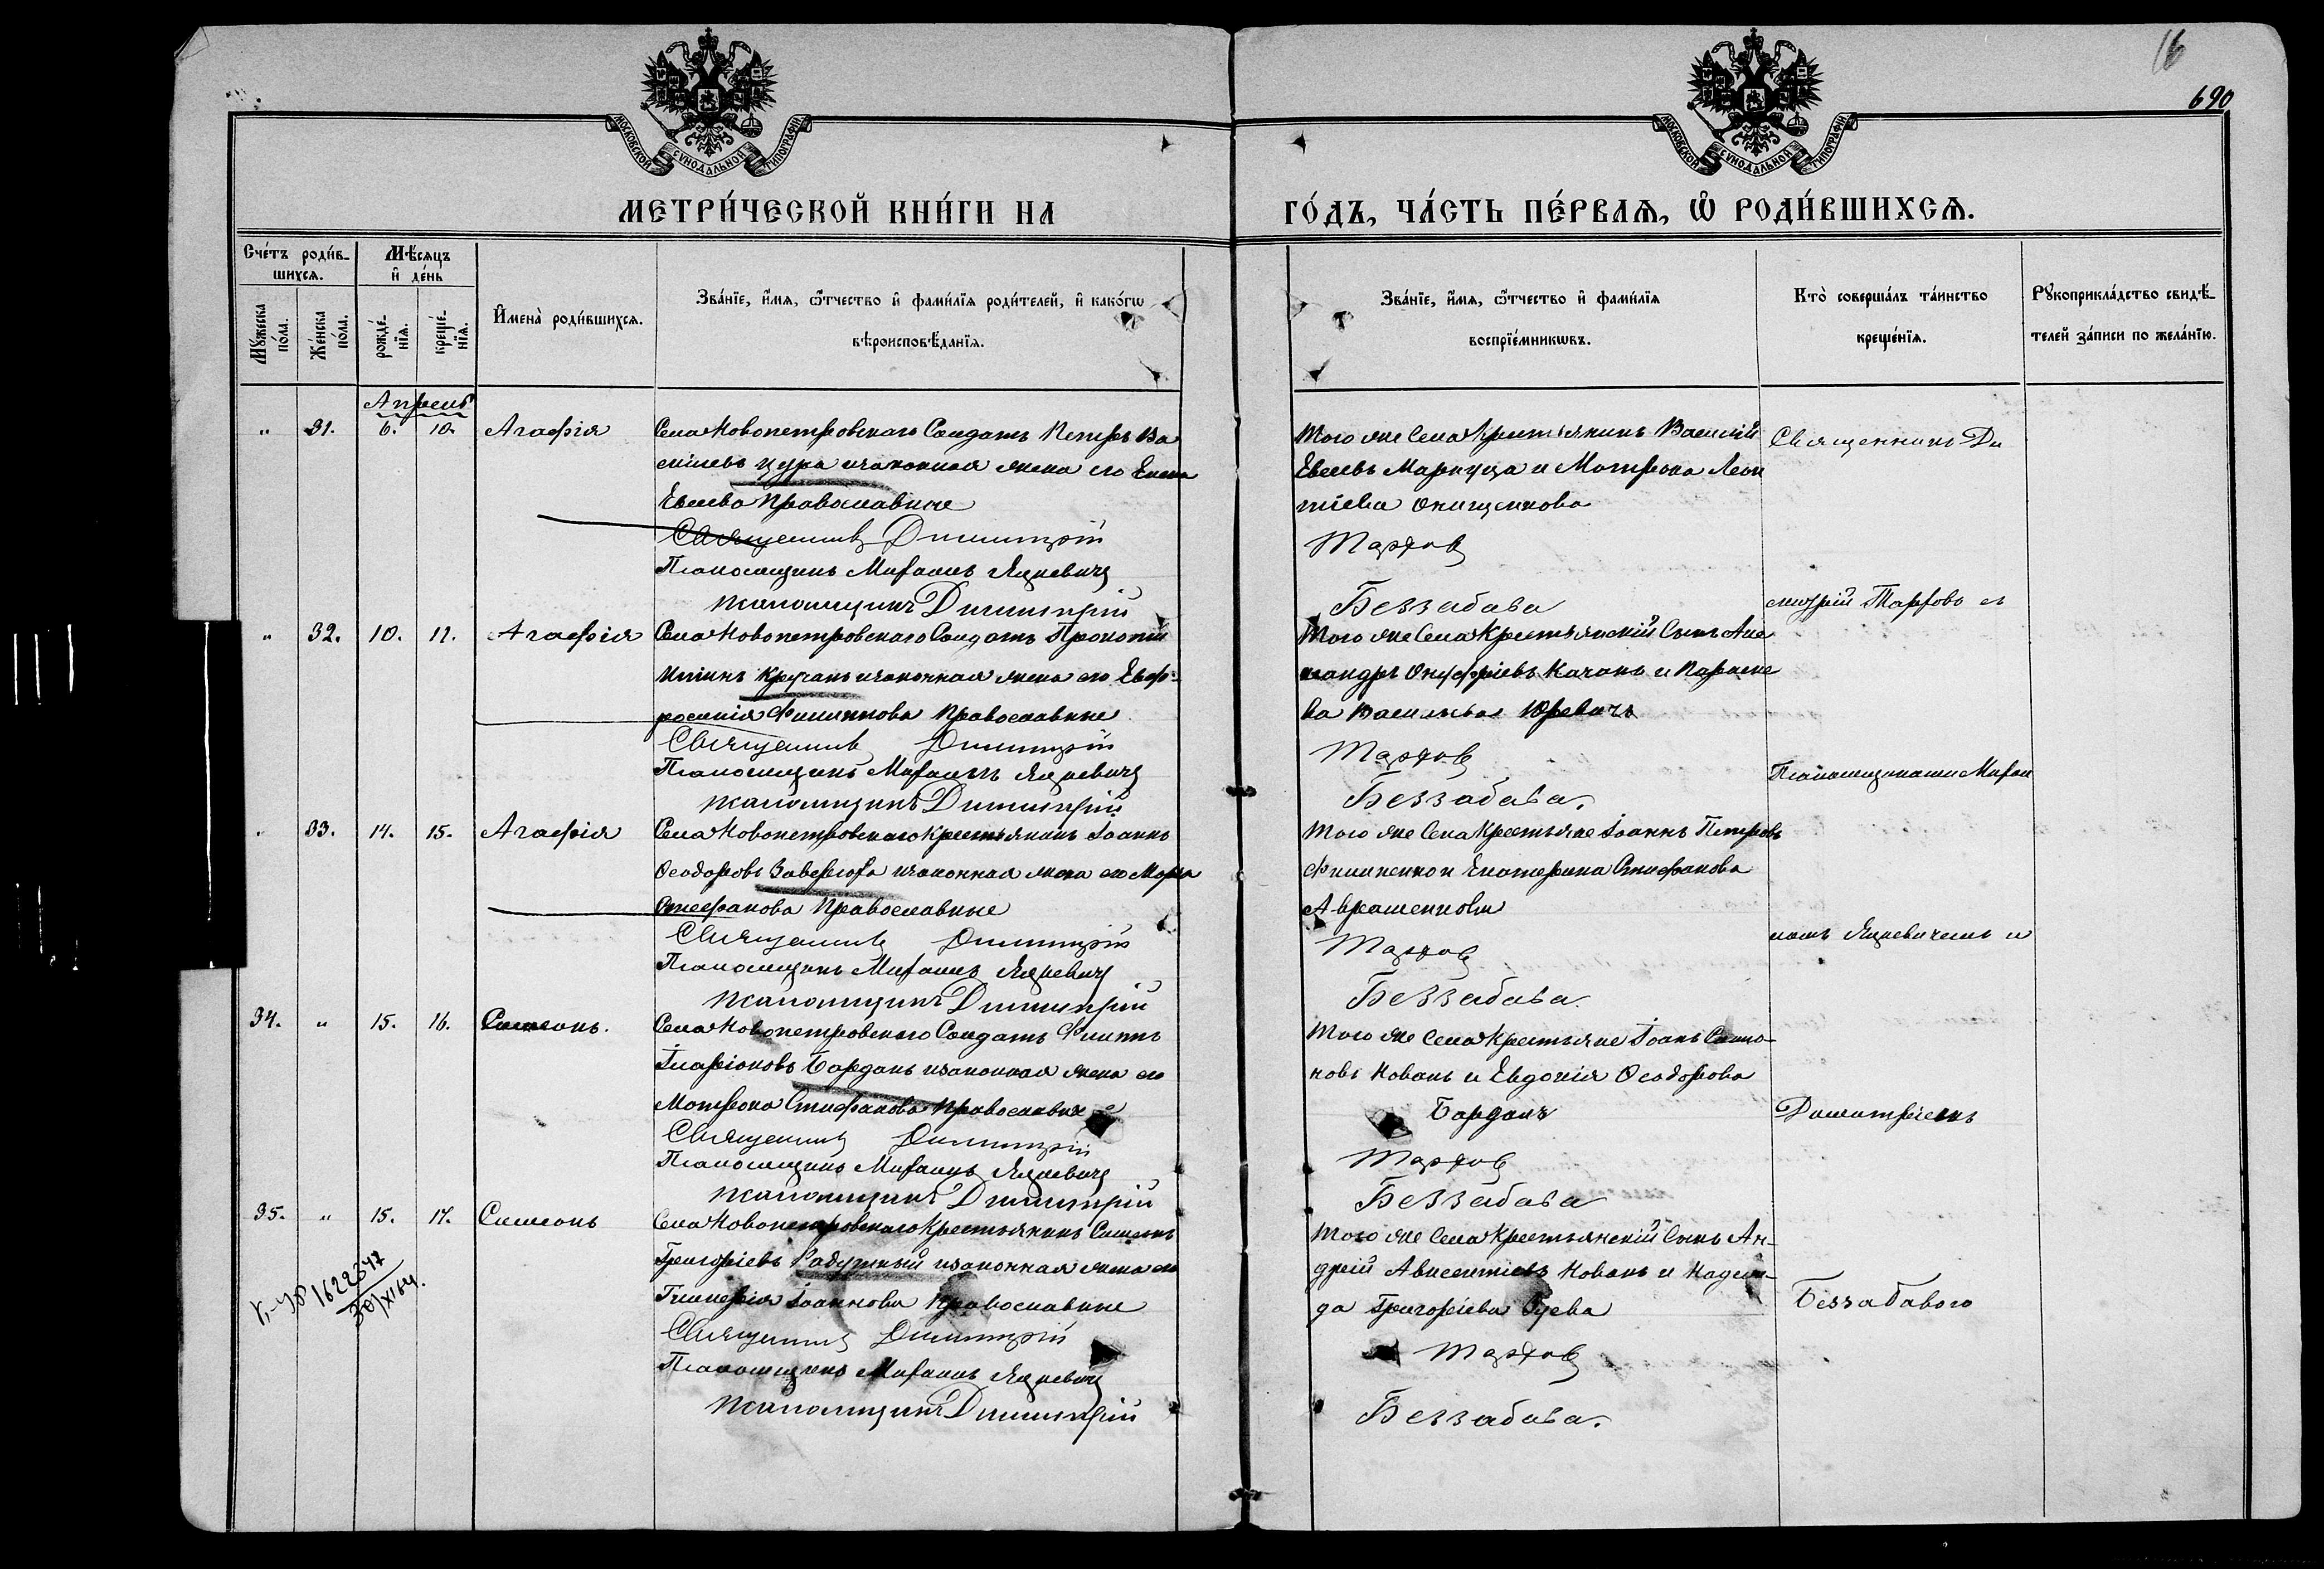 16
690
МОСКОВСКОЙ СѴНОДАЛЬНОЙ ТИПОГРАФІИ
МОСКОВСКОЙ СѴНОДАЛЬНОЙ ТИПОГРАФІИ
МЕТРИ́ЧЕСКОЙ КНИ́ГИ НА
ГО́ДЪ, ЧА́СТЬ ПЕ́РВАЯ, Ѡ РОДИ́ВШИХСЯ.
Счетъ роди́в-
шихся.
Мѣсяцъ
и де́нь
Мужеска по́ла.
Же́нска по́ла.
рожде́-
нїя.
креще́-
нїя.
И҆мена̀ роди́вшихся.
Зва́нїе, и҆́мя, ѻ҆́тчество и҆ фами́лїя роди́телей, и҆ како́гѡ
вѣроисповѣ́данїя.
Зва́нїе, и҆́мя, ѻ҆́тчество и҆ фами́лїя
воспрїе́мникѡвъ.
Кто̀ соверша́лъ та́инство
креще́нїя.
Рꙋкоприкла́дство свидѣ́-
телей за́писи по жела́нїю.
Апрель
" 31. 6. 10. Агафія
Села Новопетровскаго Солдатъ Петръ Ва
силіевъ Цура и законная жена его Елена
Евсиева Православные
Священникъ Димитрій
Псаломщикъ Михаилъ Яцкевичъ
псаломщикъ Димитрій
Того же Села Крестьянинъ Василій
Евсиевъ Маркуца и Матрона Леон
тіева Онищенкова
Тарховъ
Беззабава
Священникъ Ди
" 32. 10. 11. Агафія
Села Новопетровскаго Солдатъ Прокопій
Кручанъ и законная жена его Евф-
росинія Филипова Православные
Священникъ Димитрій
Псаломщикъ Михаилъ Яцкевичъ
псаломщикъ Димитрій
Того же Села Крестьянскій Сынъ Але
ксандръ Онуфріевъ Качанъ и Параске
ва Васильева Юревичъ
Тарховъ
Беззабава.
митрій Тарховъ съ
" 33. 14. 15. Агафія
Села Новопетровскаго Крестьянинъ Іоаннъ
Ѳеодоровъ Заверюха и законная жена его Марія
Стефанова Православные
Священникъ Димитрій
Псаломщикъ Михаилъ Яцкевичъ
псаломщикъ Димитрій
Того же Села Крестьяне Іоаннъ Петровъ
Филипенко и Екатерина Стефанова
Аврашенкова
Тарховъ
Беззабава
Псаломщиками Михаи
ломъ Яцкевичемъ и
34. " 15. 16. Симеонъ.
Села Новопетровскаго Солдатъ Филиппъ
Іларіоновъ Барданъ и законная жена его
Матрона Стефанова Православные
Священникъ Димитрій
Псаломщикъ Михаилъ Яцкевичъ
псаломщикъ Димитрій
Того же Села Крестьяне Іоанъ Симо-
новъ Кованъ и Евдокія Ѳеодорова
Барданъ
Тарховъ
Беззабава
Димитріемъ
35. " 15. 17. Симеонъ
Села Новопетровскаго Крестьянинъ Симеонъ
Григоріевъ Радужный и законная жена его
Гликерія Іоаннова Православные
Священникъ Димитрій
Псаломщикъ Михаилъ Яцкевичъ
псаломщикъ Димитрій
Того же Села Крестьянскій Сынъ Ан-
дрей Авксентіевъ Кованъ и Надеж-
да Григоріева
Тарховъ
Беззабава.
Беззабавою
1622347
30/XI 64.